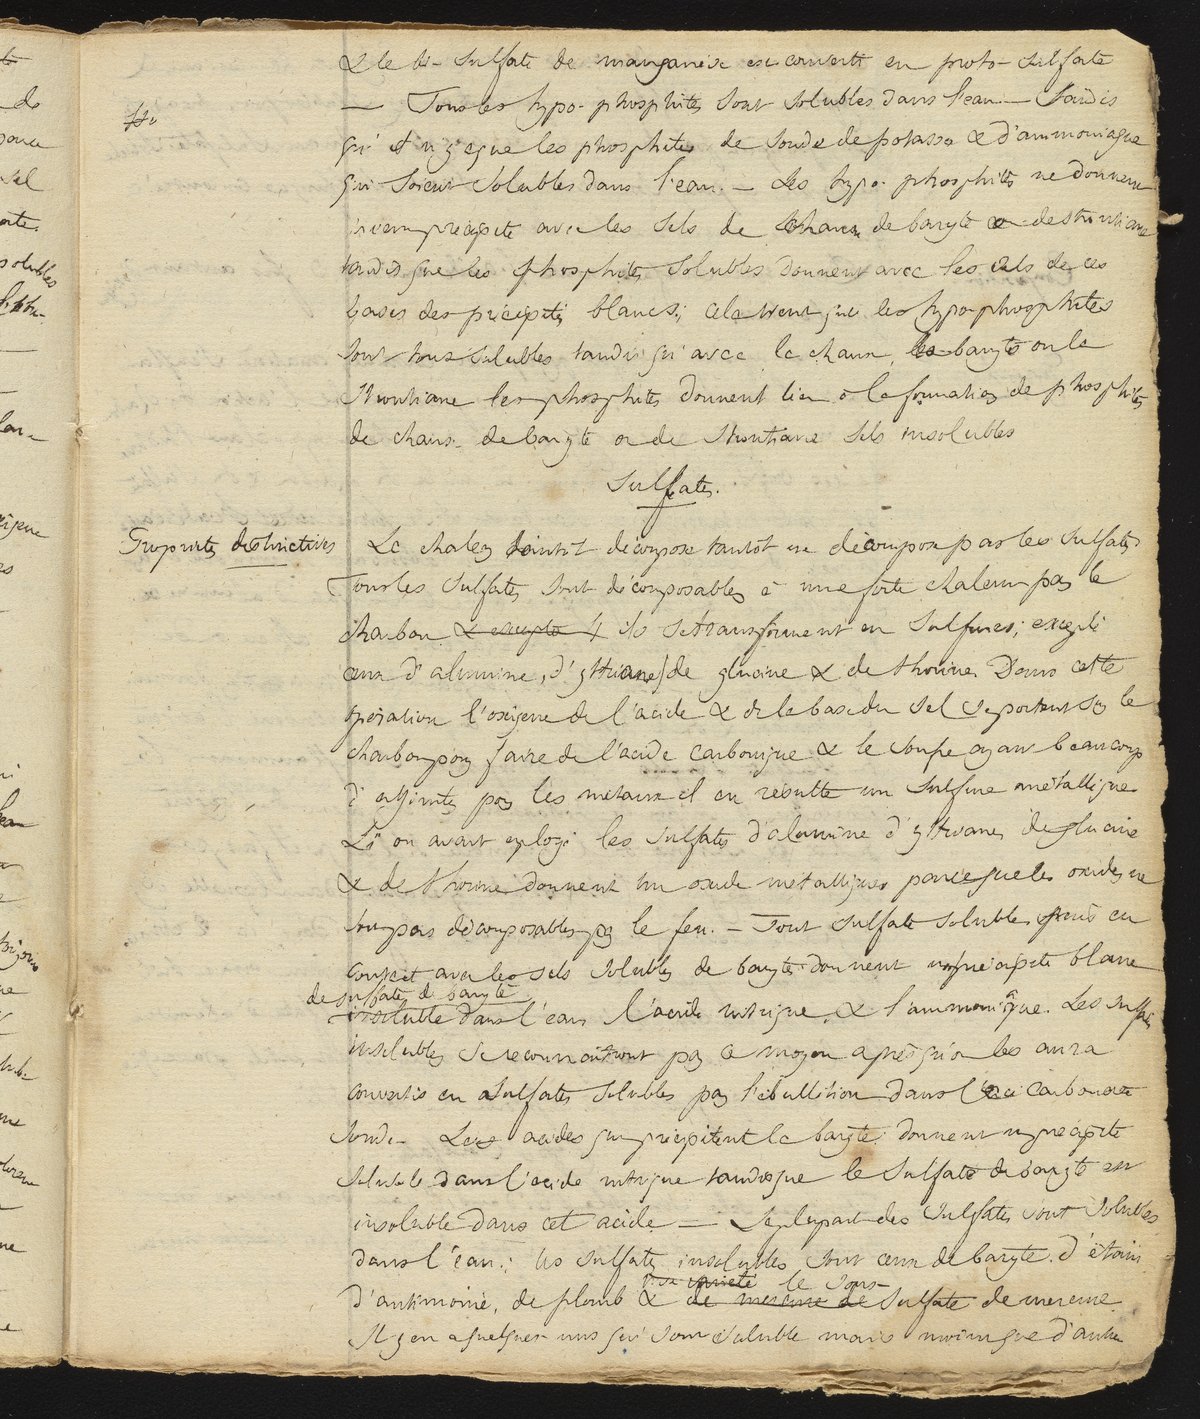 & le bi-sulfate de manganèse est converti en proto-sulfate
— Tous les hypo-phosphites sont solubles dans l'eau — tandis
qu'il n'y a que les phosphites de soude de potasse & d'ammoniaque
qui soient solubles dans l'eau. — Les hypo-phosphites ne donnent
précipité avec les sels de chaux de baryte & de strontiane
tandis que les phosphites solubles donnent avec les sels de ces
bases des précipités blancs; cela vient que les hypo-phosphites
sont tous solubles tandis qu'avec la chaux, la baryte ou la
strontiane les phosphites donnent lieu à la formation de phosphites
de chaux de baryte ou de strontiane sels insolubles
Sulfates.
Propriétés distinctives
La chaleur tantôt décompose tantôt ne décompose pas les sulfates
Tous les sulfates sont décomposables à une forte chaleur par le
charbon & excepté 4 ils se transforment en sulfures; excepté
ceux d'alumine, d'yttriane, de glucine & de thorine. Dans cette
opération l'oxigene de l'acide & de la base du sel se portent sur le
charbon pour faire de l'acide carbonique & le soufre ayant beaucoup
d'affinité pour les métaux il en résulte un sulfure métallique.
Si on avait employé les sulfates d'alumine d'yttriane, de glucine
& de thorine donnent un oxide métallique, parceque les oxides ne
sont pas décomposables par le feu. — Tout sulfate soluble mis en
contact avec les sels solubles de baryte donnent un précipité blanc
de sulfate de baryte
insoluble dans l'eau l'acide nitrique, & l'ammoniaque. Les sulfates
insolubles se reconnaitront par ce moyen après qu'on les aura
convertis en sulfates solubles par l'ébullition dans le carbonate
soude. Les acides qui précipitent la baryte donnent un précipité
soluble dans l'acide nitrique tandis que le sulfate de baryte est
insoluble dans cet acide — La plupart des sulfates sont solubles
dans l'eau; les sulfates insolubles sont ceux de baryte, d'étain
le sous-
d'antimoine, de plomb & de mercure de sulfate de mercure.
Il y en a quelques uns qui sont soluble mais moins que d'autre